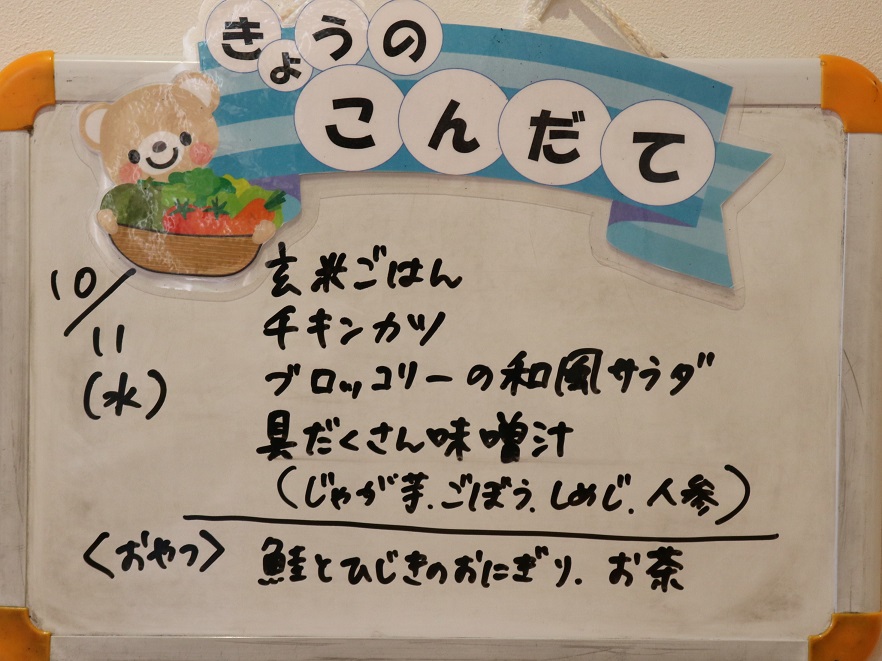 きょうの
こんだて
10/11
(水)
玄米ごはん
チキンカツ
ブロッコリーの和風サラダ
具だくさん味噌汁
(じゃが芋.ごぼう.しめじ.人参)
<おやつ> 鮭とひじきのおにぎり.お茶